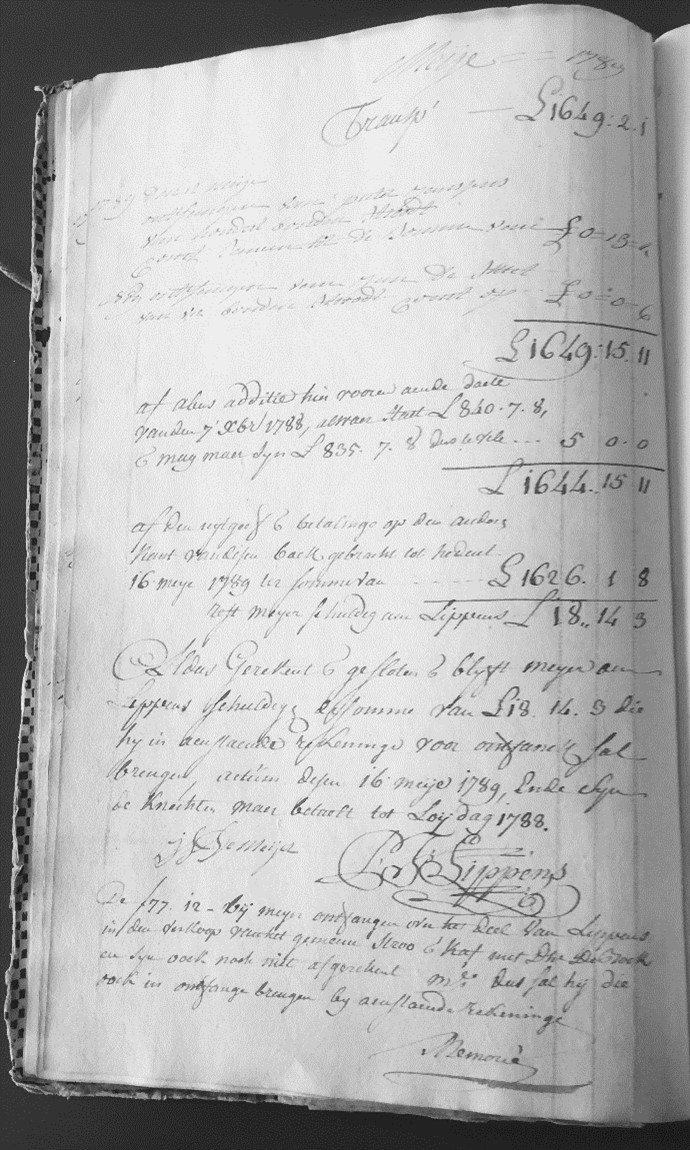 Meije == 1789
Transp' — £1649:2.1
1789 meije
ontfanghen van
van
Comt samen tot de Somme van £0=13=4
ontfanghen van
van £0=0=6
£1649:15.11
af abus additie hier vooren aende daete
vanden 7' Xbr 1788, alwaer staet £840.7.8,
& mag maer syn £835.7.8 dus te vele ... 5 0.0
£1644..15 11
af den uytgeef & betalinge op den anders
kant van desen boek gebracht tot hedent
16 meye 1789 ter somme van ------ £1626.1 8
rest meyer schuldig aen Lippens £18,,14 3
Aldus Gerekent & gesloten & blyft meyer aen
Lippens schuldig de somme van £18.14.3 die
hy in aenstaende rekeninge voor ontfanck sal
brengen, actum desen 16 meije 1789, Ende syn
de knechten maer betaelt tot Loijdag 1788.
De Meijer
Lippens
De £77.12- bij meyer ontfangen over het deel van Lippens
in den verkoop van het gemeene stroo & kaf met Dhr De Bock
en syn oock noch niet afgerekent dus sal hij die
oock in ontfange brengen by aenstaende rekeninge
Memorie